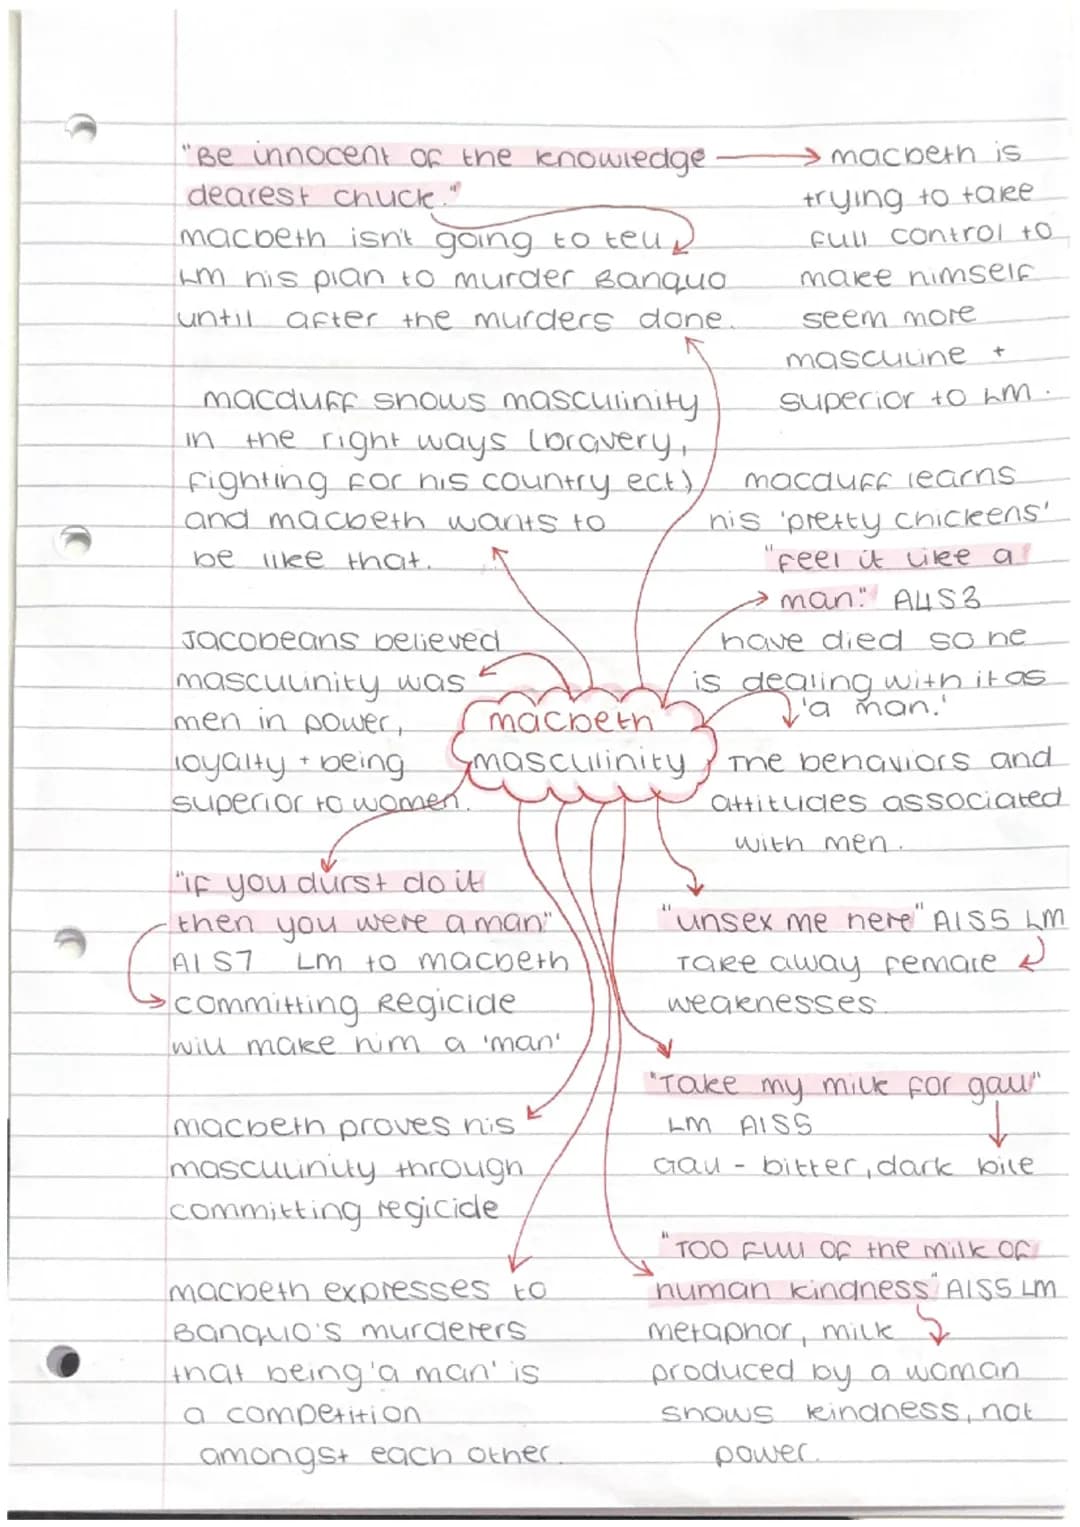 "Be innocent of the knowledge
dearest chuck."
macbeth isn't going to tell
LM his plan to murder Banquo
until after the murders done.
macbeth is
trying to take
full control to
make himself
seem more
masculine +
superior to LM.
macduff shows masculinity
in the right ways (bravery,
fighting for his country ect)
and macbeth wants to
be like that.
macduff learns
his 'pretty chickens'
"feel it like a
man." A4S3
have died so he
is dealing with it as
'a man.'
Jacobeans believed
masculinity was
men in power,
loyalty + being
superior to women.
macbeth
masculinity
The behaviors and
attitudes associated
with men.
"if you durst do it
then you were a man"
A1S7 LM to macbeth
committing Regicide
will make him a 'man'
"unsex me here" A1S5 LM
Take away female
weaknesses.
macbeth proves his
masculinity through
committing regicide
"Take my milk for gall"
LM A1S5
Gall - bitter, dark bile
macbeth expresses to
Banquo's murderers
that being 'a man' is
a competition
amongst each other.
"Too full of the milk of
human kindness" A1S5 LM
metaphor, milk
produced by a woman
shows kindness, not
power.